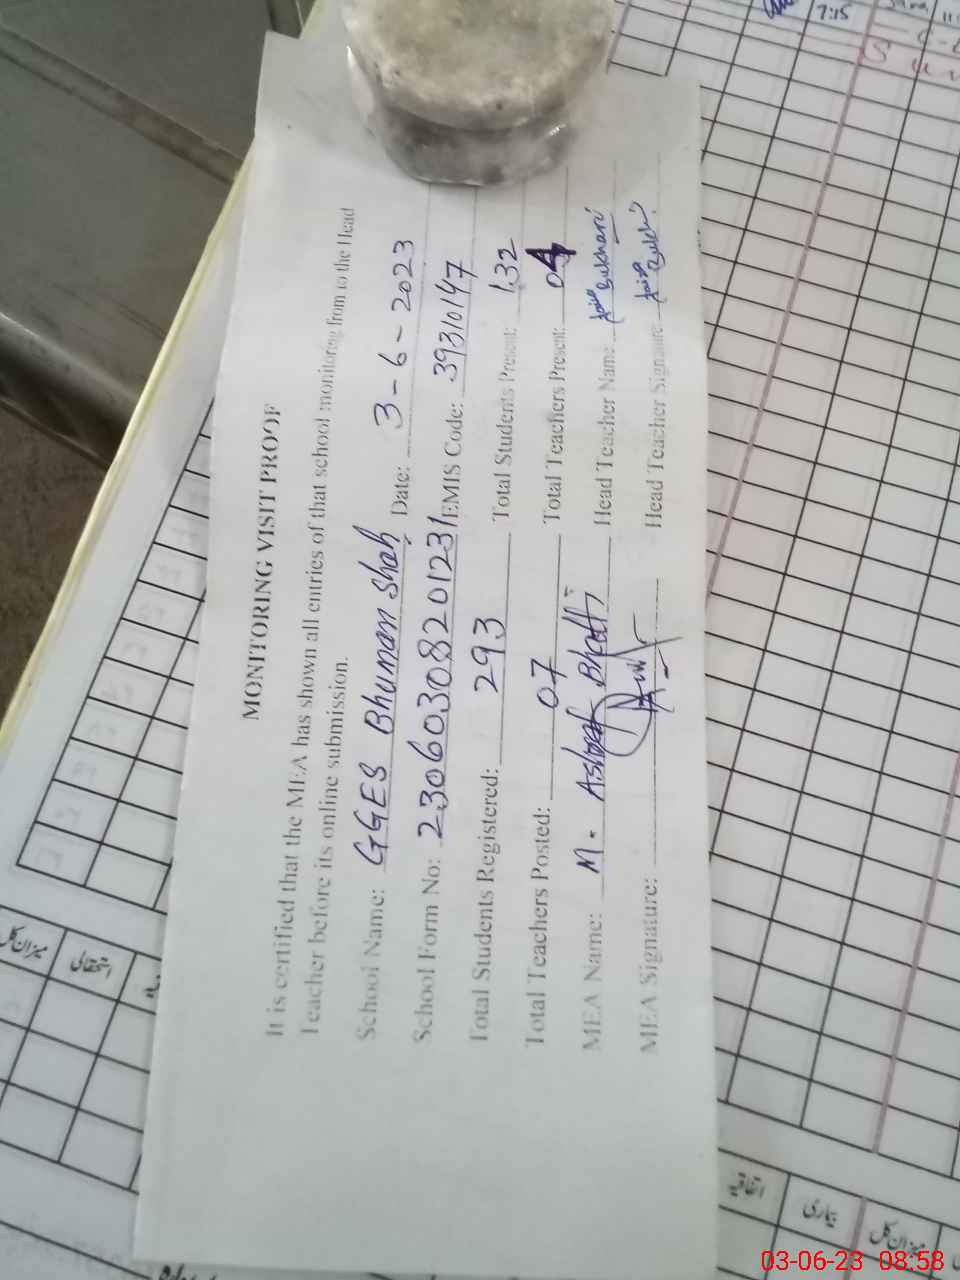 MONITORING VISIT PROOF
It is certified that the MEA has shown all entries of that school monitoring from to the Head
Teacher before its online submission.
School Name: GGES Bhuman Shah Date: 3-6-2023
School Form No: 2306030820123 EMIS Code: 39310147
Total Students Registered: 293 Total Students Present: 132
Total Teachers Posted: 07 Total Teachers Present: 04
MEA Name: M. Ashraf Bhatti Head Teacher Name: Bukhari
MEA Signature: Head Teacher Signature:
7:15
میزان کل
استحقاقی
اتفاقیہ
بیماری
میزان کل
03-06-23 08:58